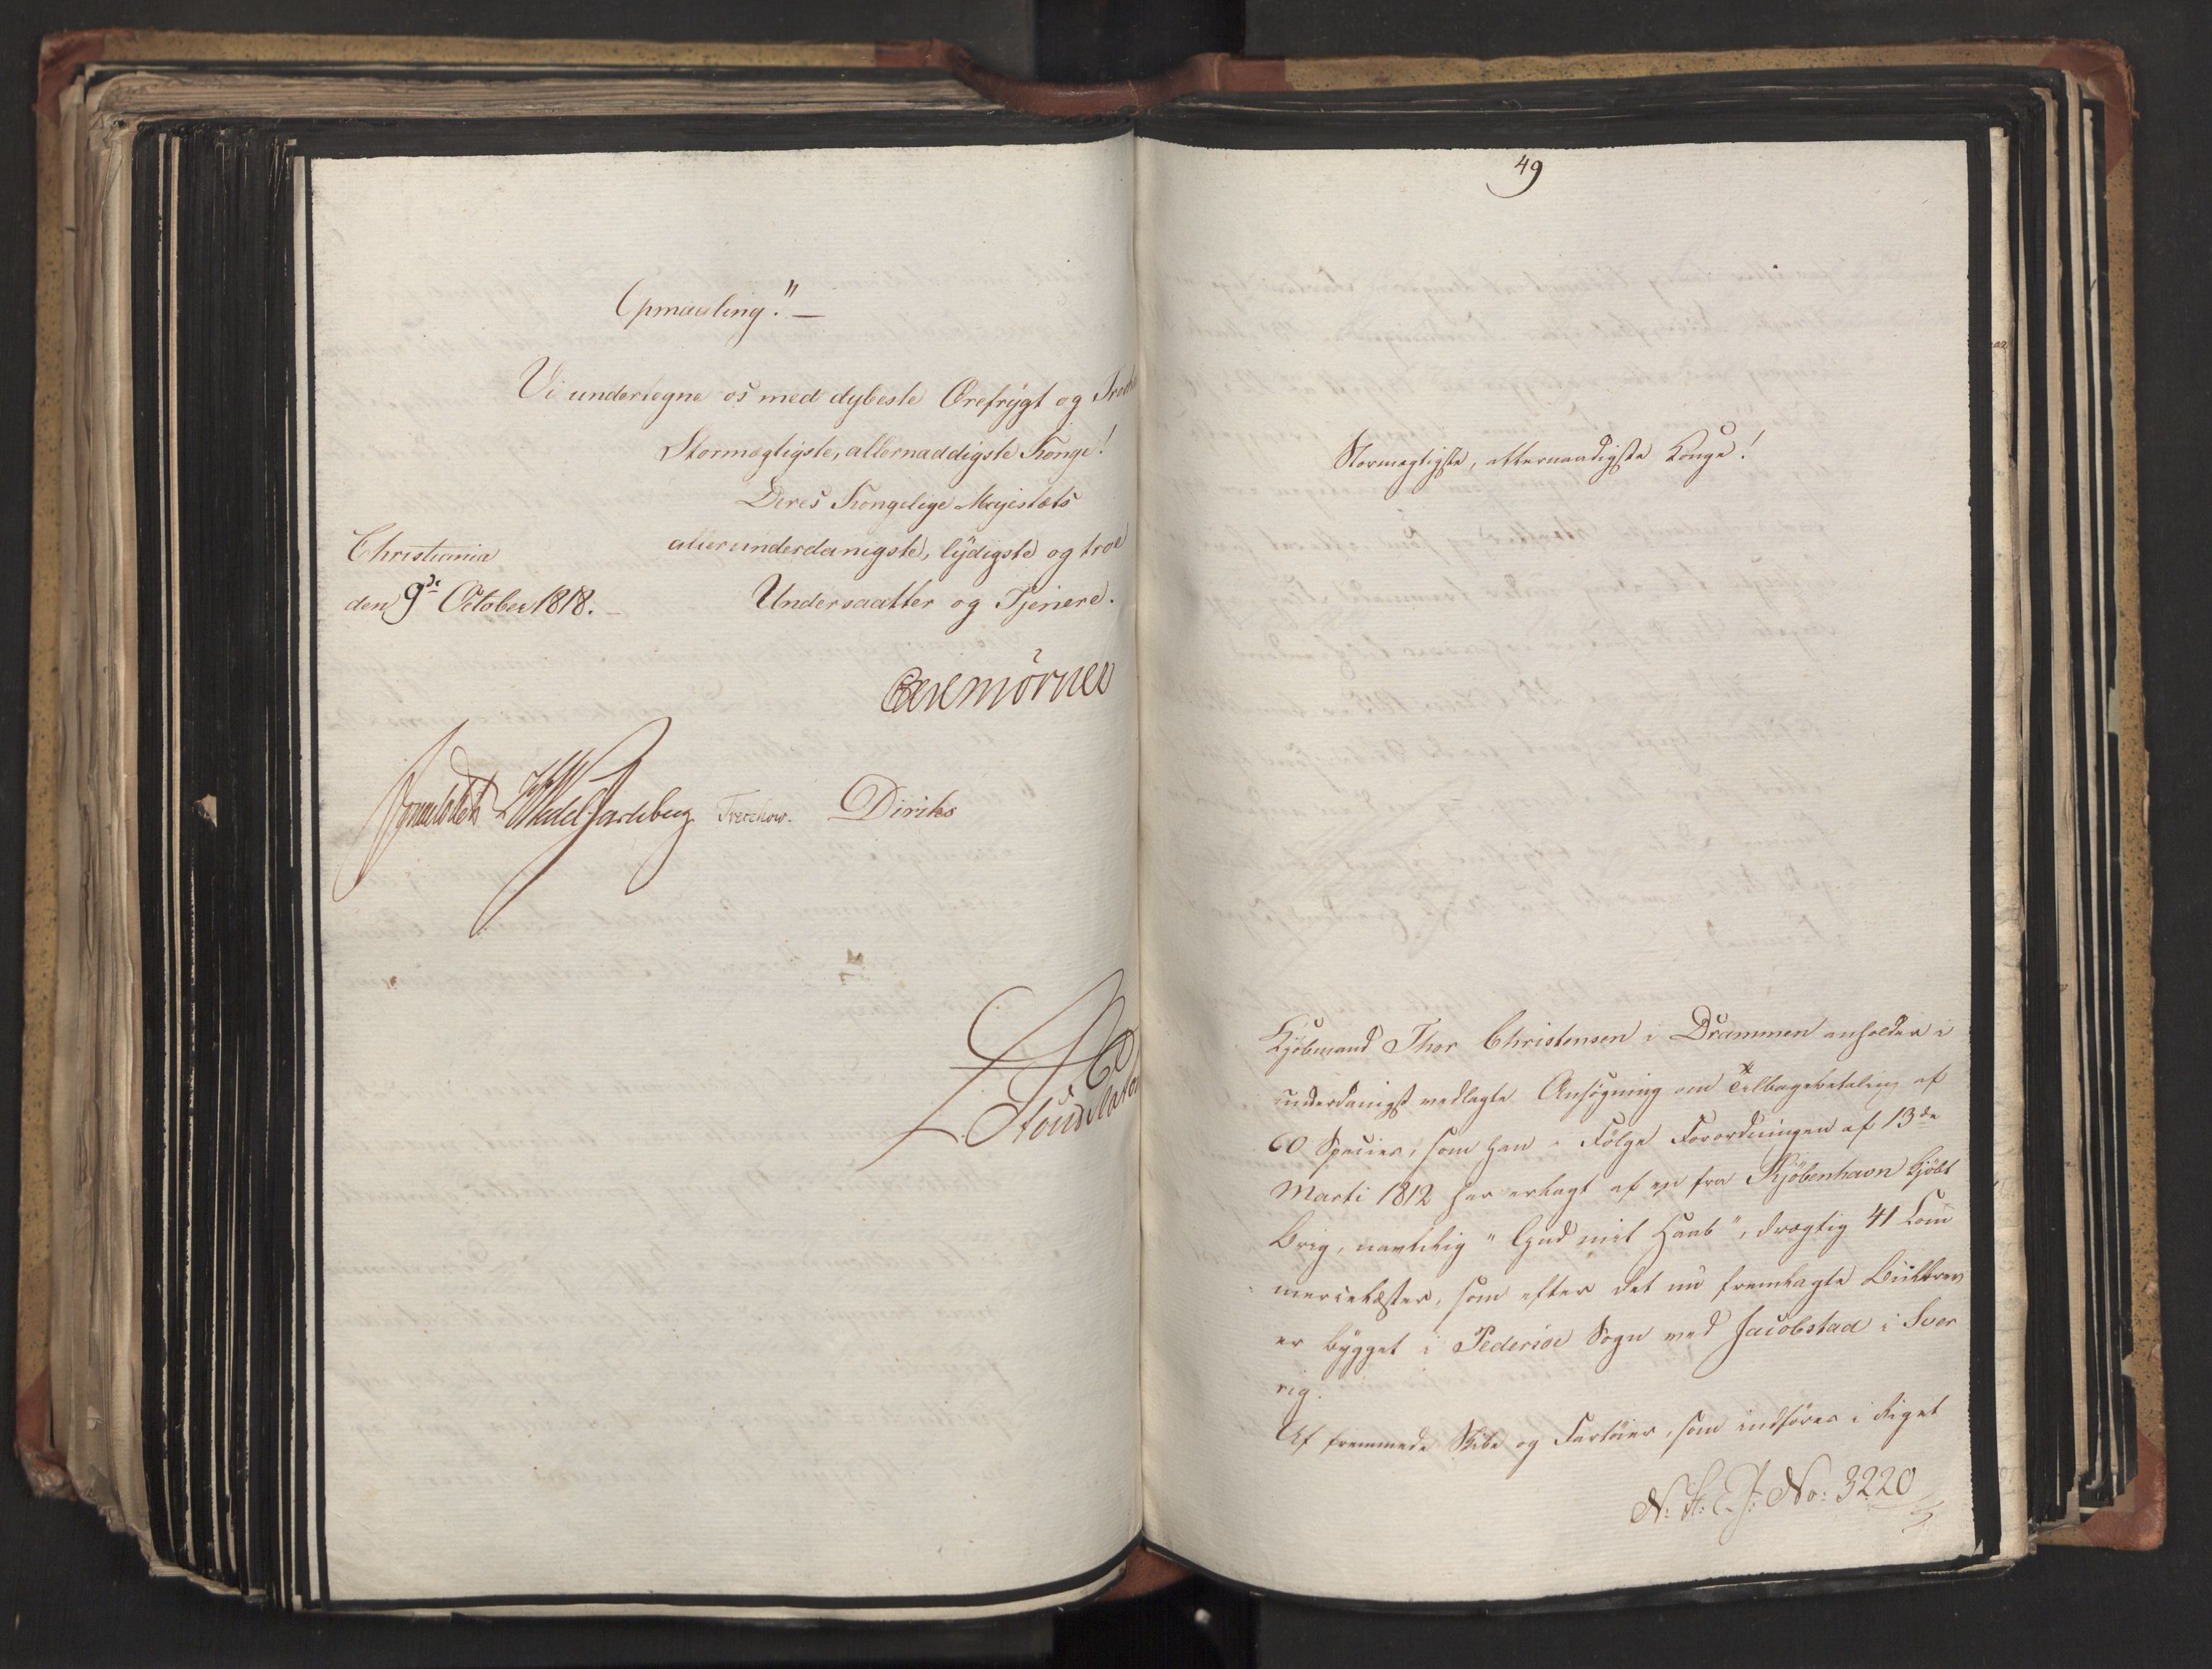 Opmaaling." —
Vi undertegne os med dybeste Ærefrygt og
Stormægtigste, allernaadigste Konge!
Deres Kongelige Majestæts
allerunderdanigste, lydigste og troe
Christiania
den 9de October 1818.
Undersaatter og Tjenere.
Mörner
Sommerhielm Wedel Jarlsberg Treschow. Diriks
49
Stormægtigste, allernaadigste Konge!
Kjøbmand Thor Christensen i Drammen anholder i
underdanigst vedlagte Ansøgning om Tilbagebetaling af
60 Species, som han i Følge Forordningen af 13de
Marti 1812 har erlagt af en fra Kjöbenhavn kjøbt
Brig, navnlig "Gud mit Haab", drægtig 41 Com
mercelæster, som efter det nu fremlagte Biilbrev
er bygget i Pedersöe Sogn ved Jacobstad i Sver
rig.
Af fremmede Skibe og Fartøier, som indføres i Riget
N: H: C. J: No: 3220